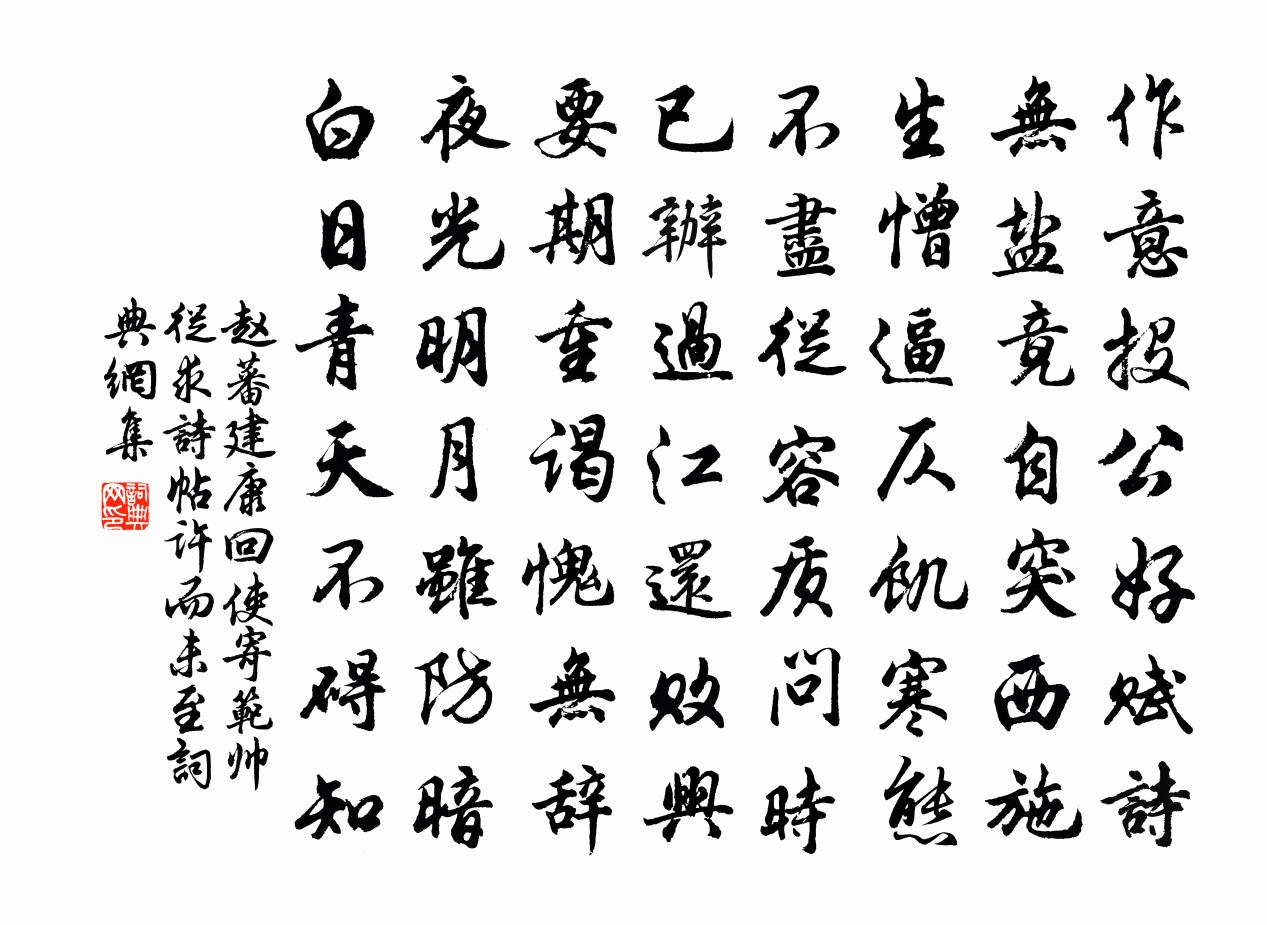 作意投公好賦詩
無盐竟自突西施
生憎逼仄飢寒態
不盡從容质問時
已辦過江還敗興
要期重谒愧無辞
夜光明月雖防暗
白日青天不碍知
赵蕃建康回使寄範帅
從求詩帖許而未至詞
典網集
詞典网印